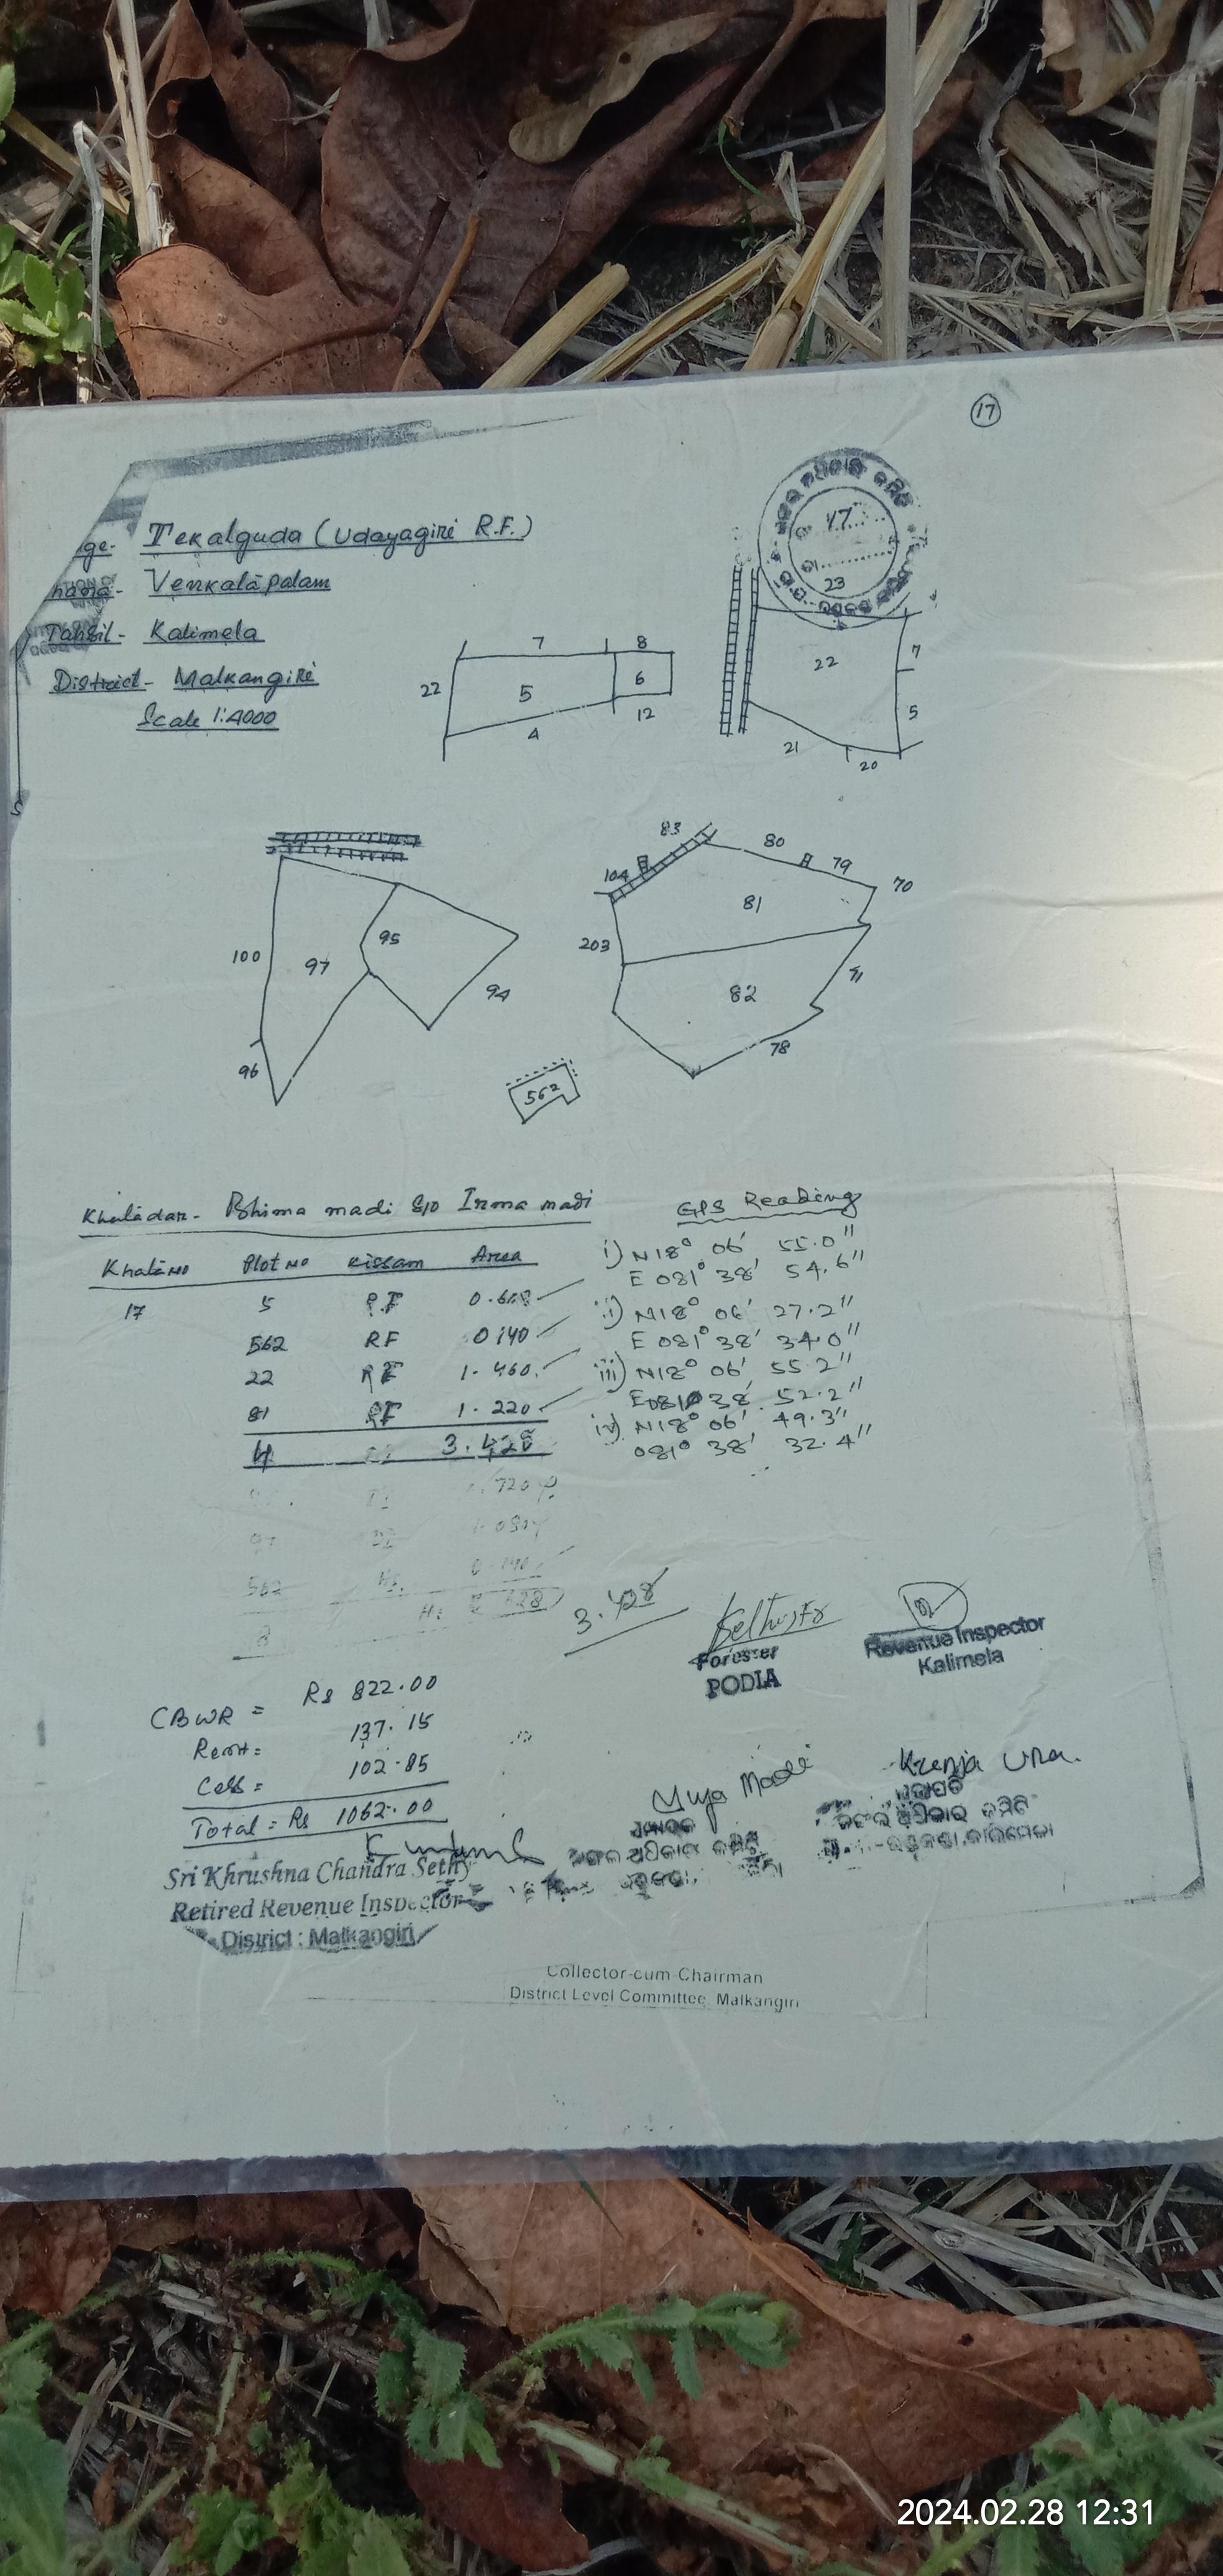 17
Tekalguda (Udayagiri R.F.)
Venkatapalam
Tahsil- Kalimela
District- Malkangiri
Scale 1:4000
17
23
7
8
22
5
6
4
12
22
7
5
21
20
83
80
79
70
104
81
203
82
71
78
100
97
95
94
96
562
Khatadar- Bhima madi S/o Irma madi
GPS Reading
Khata No Plot No Kissam Area
17 5 R.F 0.608
562 RF 0.140
22 RF 1.460
81 RF 1.220
4 3.428
i) N18° 06' 55.0"
E 081° 38' 54.6"
ii) N18° 06' 27.2"
E 081° 38' 34.0"
iii) N18° 06' 55.2"
E081° 38' 52.2"
iv) N18° 06' 49.3"
081° 38' 32.4"
562
3.428
Forester
PODIA
Revenue Inspector
Kalimela
CBWR = Rs 822.00
Rent= 137.15
Cess= 102.85
Total = Rs 1062.00
Sri Khrushna Chandra Sethy
Retired Revenue Inspector
District : Malkangiri
Muja Madi
ଜଙ୍ଗଲ ଅଧିକାର କମିଟି
Collector-cum-Chairman
District Level Committee, Malkangiri
2024.02.28 12:31